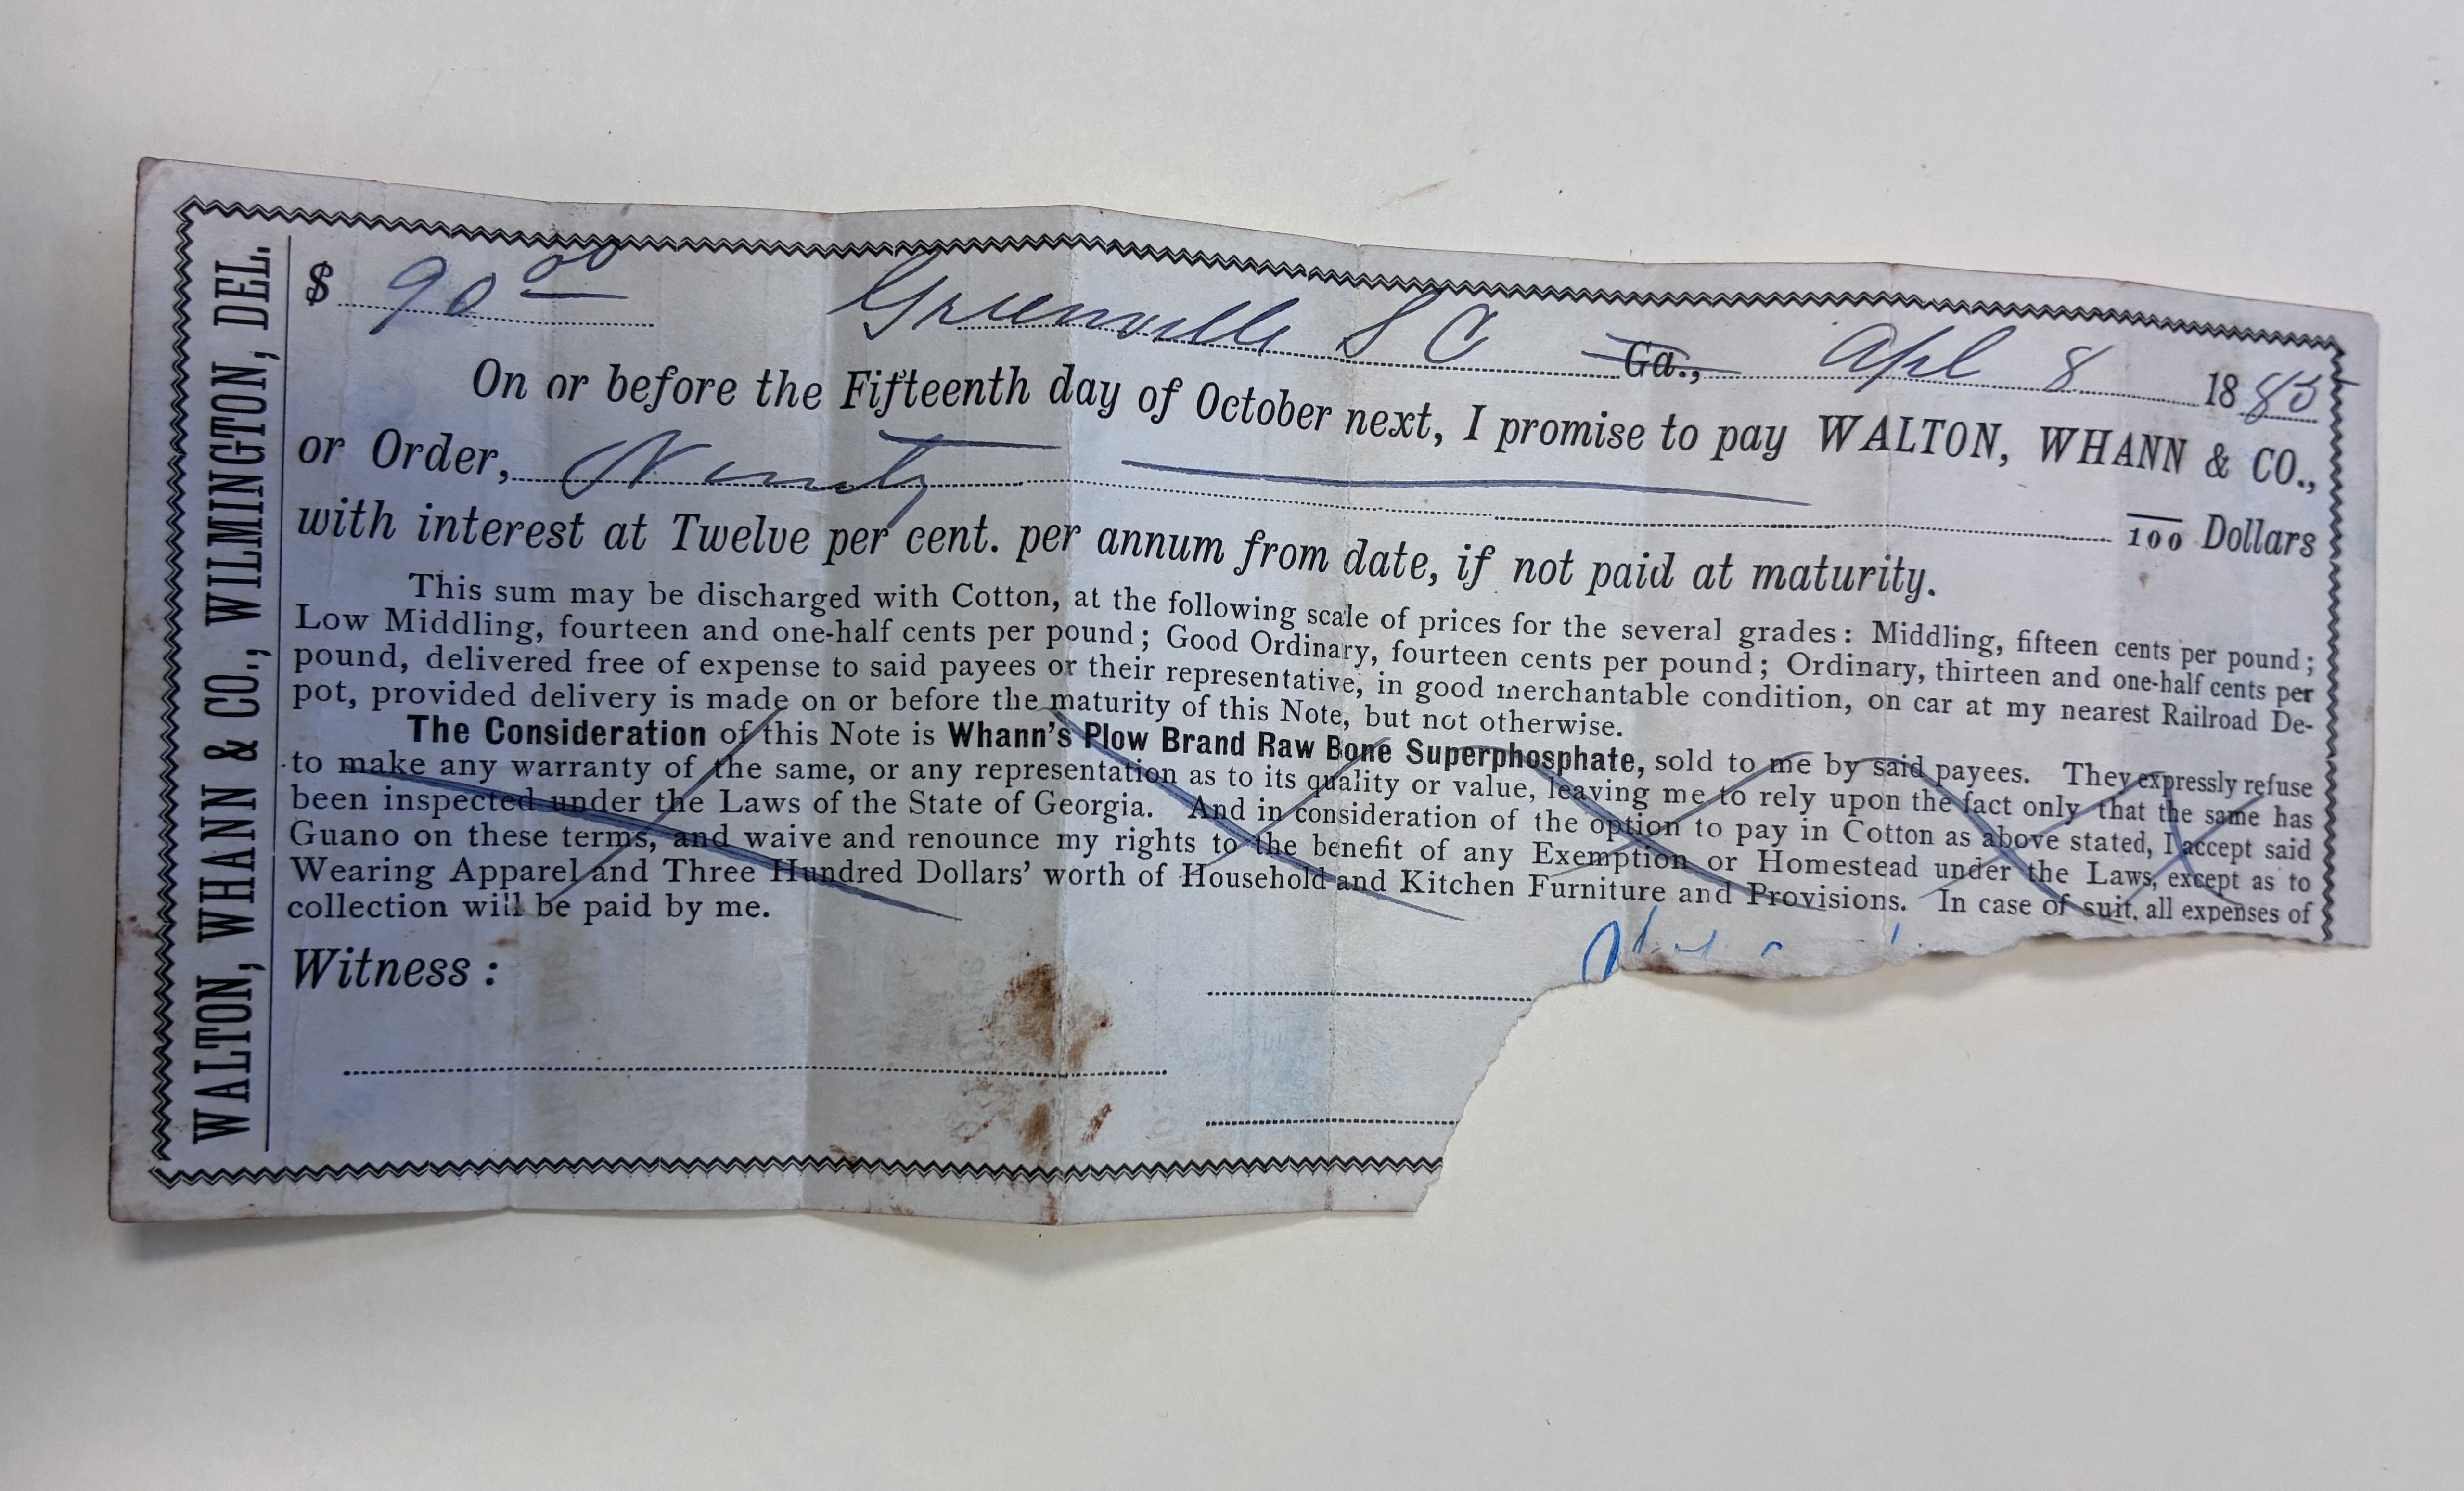 WALTON, WHANN & CO., WILMINGTON, DEL.
$ 90 00 Greenville S C Ga., Apl 8 1885
On or before the Fifteenth day of October next, I promise to pay WALTON, WHANN & CO.,
or Order, Ninety 100 Dollars
with interest at Twelve per cent. per annum from date, if not paid at maturity.
This sum may be discharged with Cotton, at the following scale of prices for the several grades: Middling, fifteen cents per pound;
Low Middling, fourteen and one-half cents per pound; Good Ordinary, fourteen cents per pound; Ordinary, thirteen and one-half cents per
pound, delivered free of expense to said payees or their representative, in good merchantable condition, on car at my nearest Railroad De-
pot, provided delivery is made on or before the maturity of this Note, but not otherwise.
The Consideration of this Note is Whann's Plow Brand Raw Bone Superphosphate, sold to me by said payees. They expressly refuse
to make any warranty of the same, or any representation as to its quality or value, leaving me to rely upon the fact only that the same has
been inspected under the Laws of the State of Georgia. And in consideration of the option to pay in Cotton as above stated, I accept said
Guano on these terms, and waive and renounce my rights to the benefit of any Exemption or Homestead under the Laws, except as to
Wearing Apparel and Three Hundred Dollars' worth of Household and Kitchen Furniture and Provisions. In case of suit, all expenses of
collection will be paid by me.
Witness: